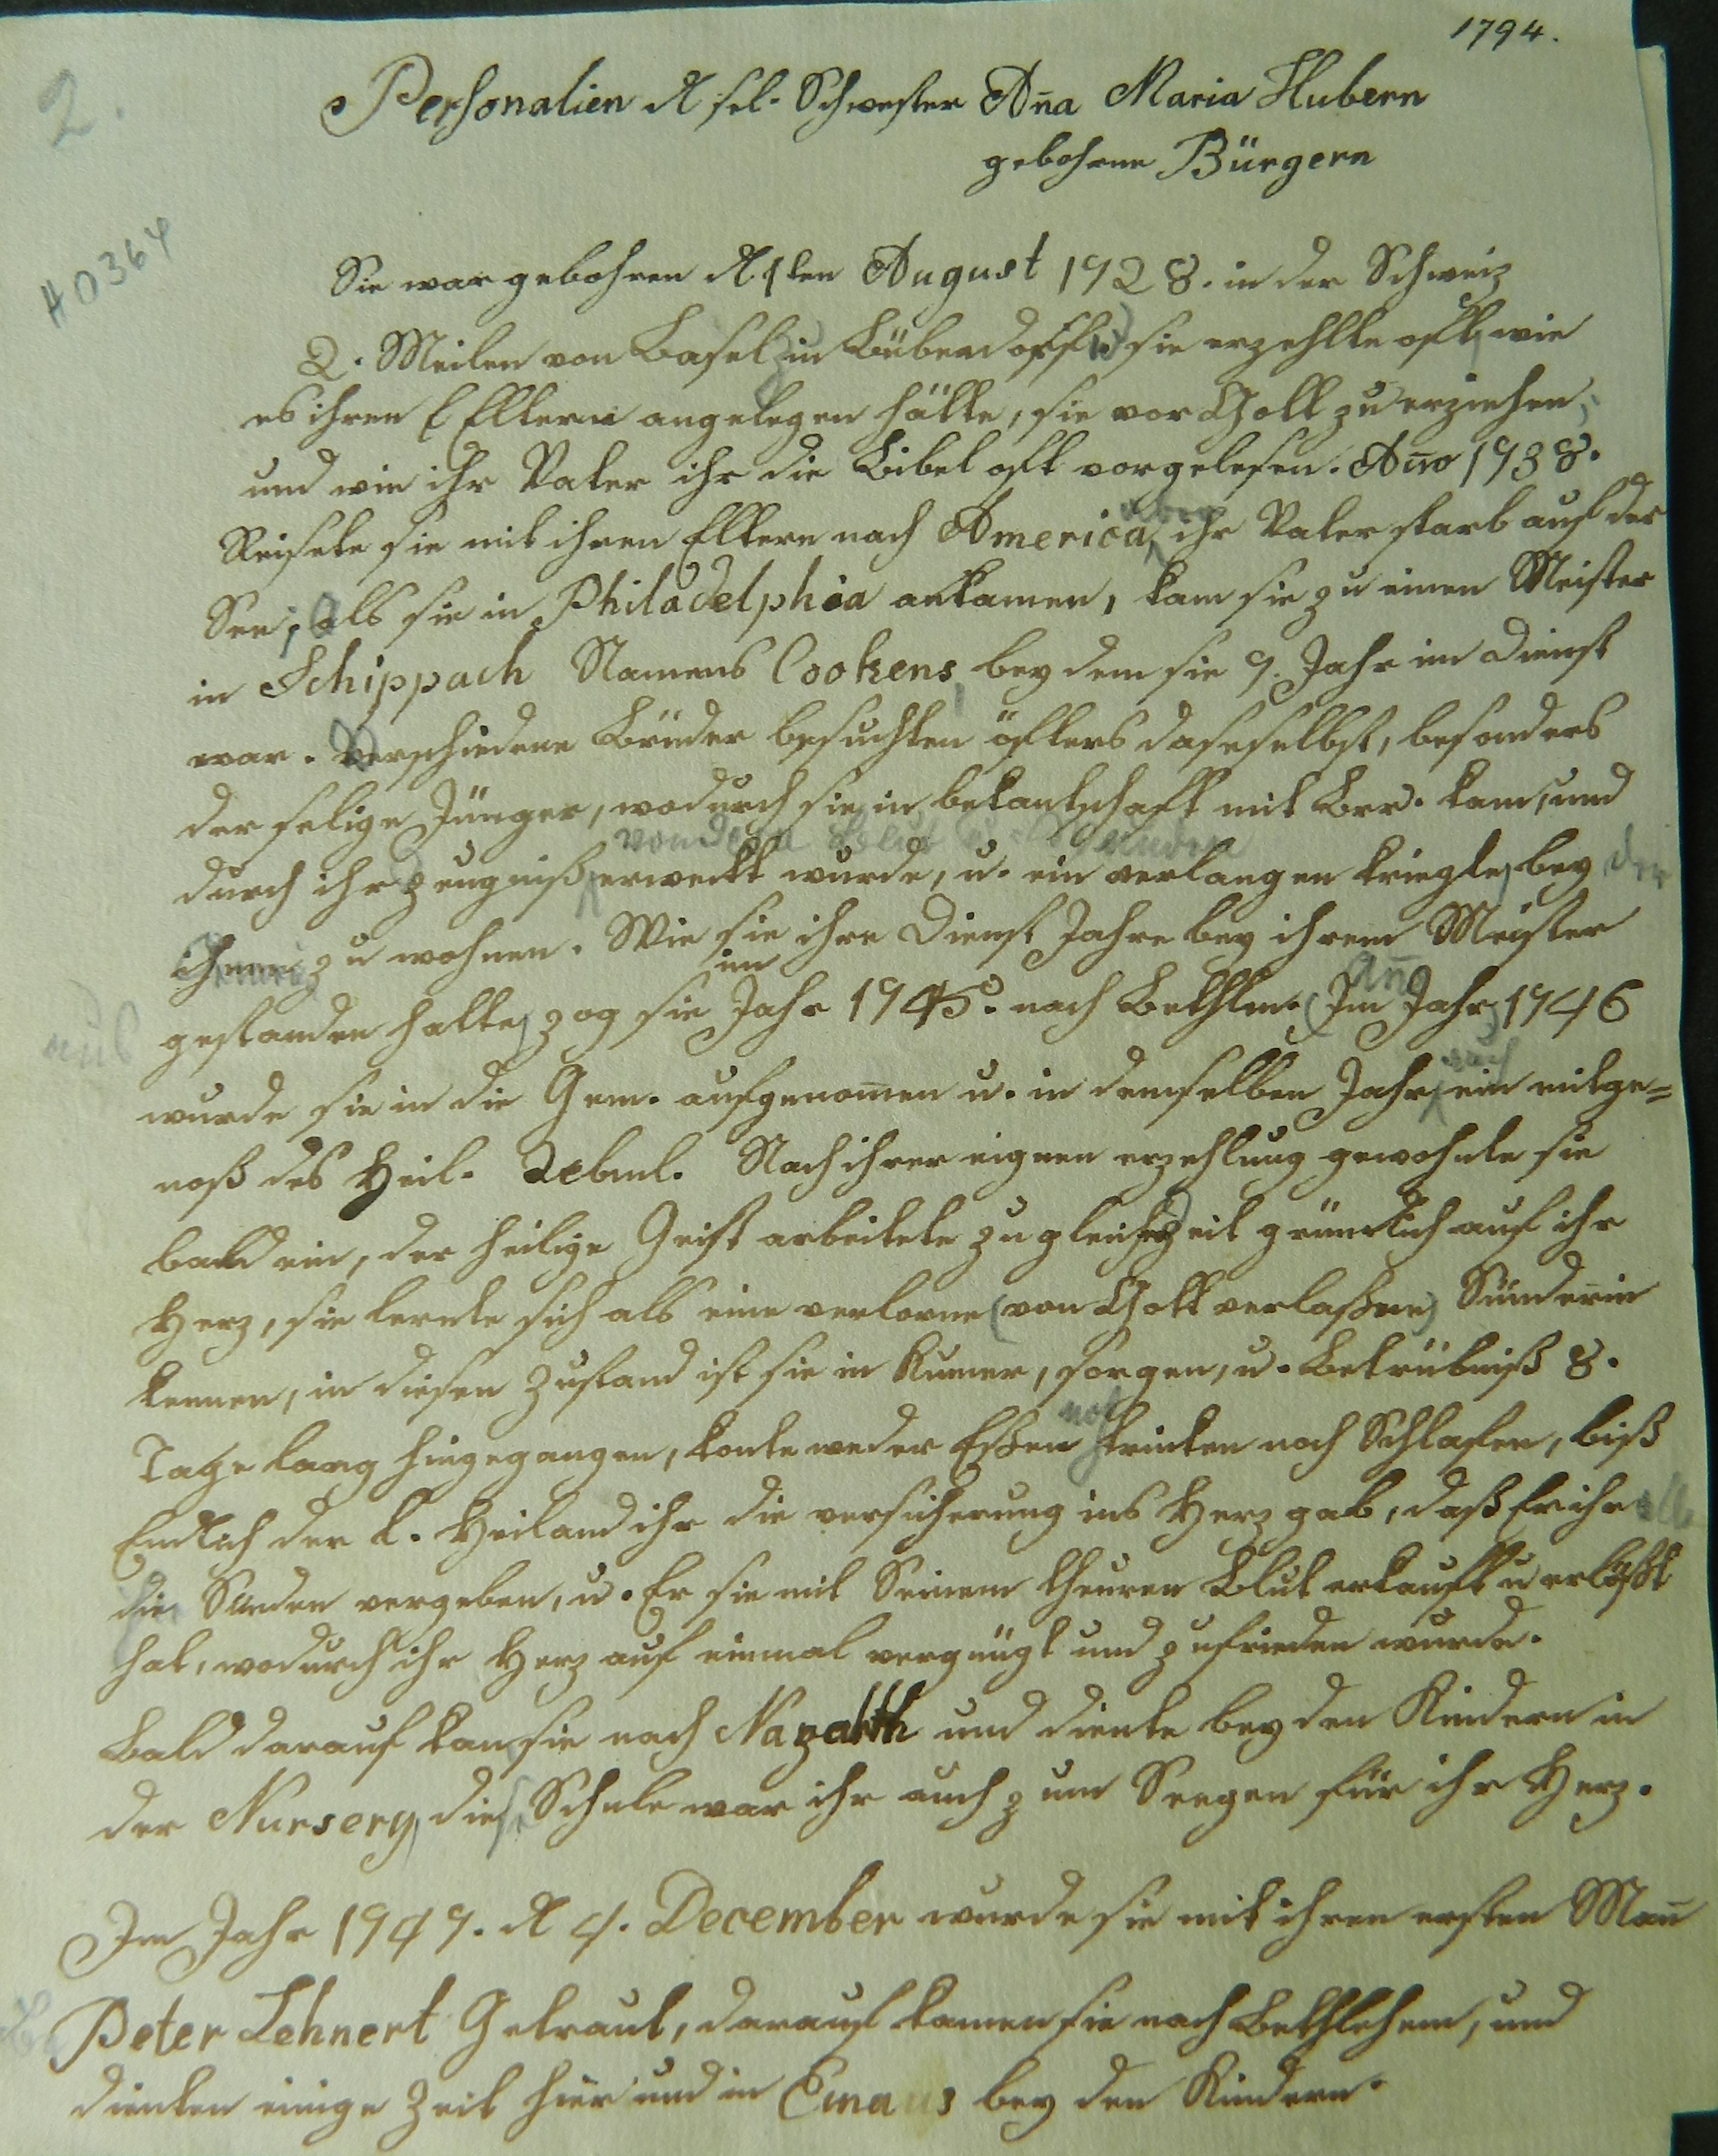 1794.
2.
Personalien d. sel. Schwester Aña Maria Hubern
gebohrne Bürgern
40364
Sie war gebohren d. 1ten August 1728. in der Schweiz
2. Meilen von Basel in Bubendorff, sie erzehlte oft, wie
es ihren Eltern angelegen hätte, sie vor Gott zu erziehen,
und wie ihr Vater ihr die Bibel oft vorgelesen. Año 1738.
Reisete sie mit ihren Eltern nach America, aber ihr Vater starb auf der
See; als sie in Philadelphia ankamen, kam sie zu einen Meister
in Schippach Namens Cookens, bey dem sie 7. Jahr im Dienst
war. Verschiedene Brüder besuchten öfters daseselbst, besonders
der selige Jünger, wodurch sie in bekantschaft mit Brr. kam, und
von dem Blut
durch ihr zeugniß erweckt wurde, u. ein verlangen kriegte, bey der
zu wohnen. Wie sie ihre Dienst Jahre bey ihrem Meister
aus
gestanden hatte, zog sie im Jahr 1745. nach Bethlm. (Im Jahr) Año 1746
wurde sie in die Gem. aufgenom̄en u. in demselben Jahr auch ein mitge=
noß des Heil. Abml. Nach ihrer eignen erzehlung gewohnte sie
bald ein, der heilige Geist arbeitete zu gleicher Zeit gründlich auf ihr
Herz, sie lernte sich als eine verlorne (von Gott verlaßne) Sünderin
kennen, in diesen Zustand ist sie in Kumer, sorgen, u. Betrübniß 8.
Tage lang hingegangen, konte weder Eßen noch trinken noch Schlafen, biß
Endlich der l. Heiland ihr die versicherung ins Herz gab, daß Er ihr alle
die Sünden vergeben, u. Er sie mit Seinem theuren Blut erkauft u erlößt
hat, wodurch ihr Herz auf einmal vergnügt und zufrieden wurde.
Bald darauf kam sie nach Nazareth und diente bey den Kindern in
der Nursery, diese Schule war ihr auch zum Seegen für ihr Herz.
Im Jahr 1747. d. 4. December wurde sie mit ihren ersten Mañ
Peter Lehnert Getraut, darauf kamen sie nach Bethlehem, und
dienten einige Zeit hier und in Emaus bey den Kindern.